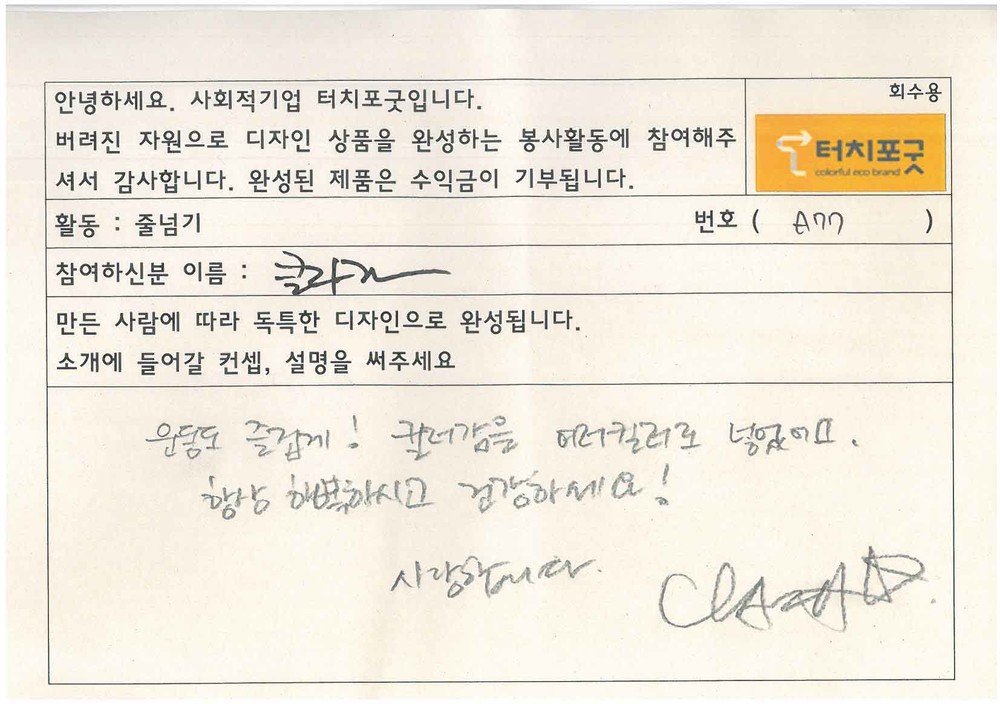 안녕하세요. 사회적기업 터치포굿입니다.
버려진 자원으로 디자인 상품을 완성하는 봉사활동에 참여해주
셔서 감사합니다. 완성된 제품은 수익금이 기부됩니다.
회수용
터치포굿
colorful eco brand
활동 : 줄넘기
번호 ( A77 )
참여하신분 이름 : 클라라
만든 사람에 따라 독특한 디자인으로 완성됩니다.
소개에 들어갈 컨셉, 설명을 써주세요
운동도 즐겁게! 컬러감을 여러컬러로 넣었어요.
항상 행복하시고 건강하세요!
사랑합니다.